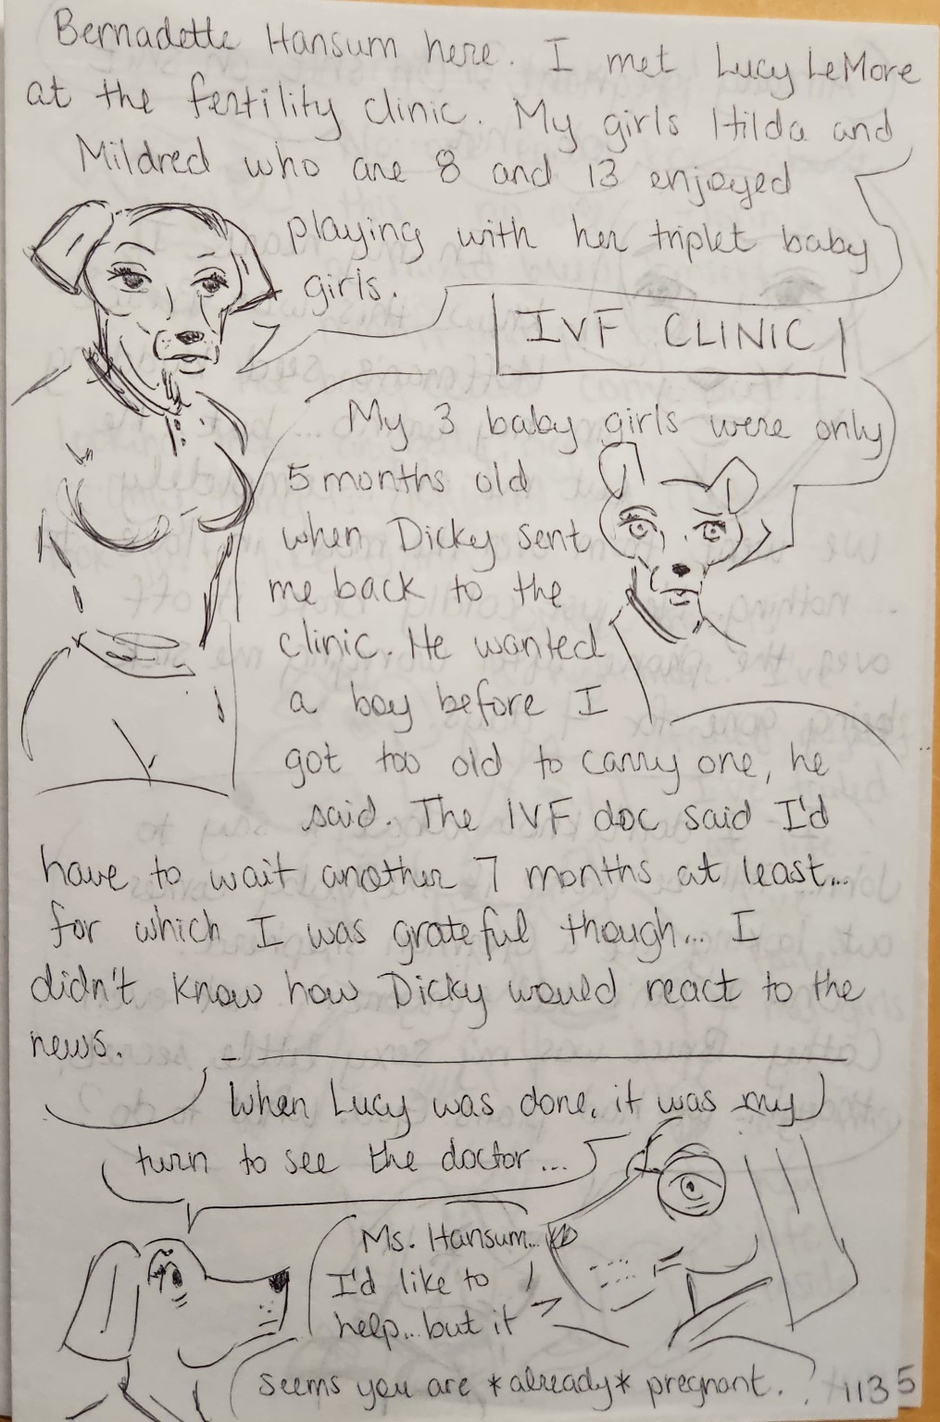 Bernadette Hansum here. I met Lucy LeMore
at the fertility clinic. My girls Hilda and
Mildred who are 8 and 13 enjoyed
playing with her triplet baby
girls.
IVF CLINIC
My 3 baby girls were only
5 months old
when Dicky sent
me back to the
clinic. He wanted
a boy before I
got too old to carry one, he
said. The IVF doc said I'd
have to wait another 7 months at least...
for which I was grateful though... I
didn't know how Dicky would react to the
news.
When Lucy was done, it was my
turn to see the doctor...
Ms. Hansum...
I'd like to
help...but it
seems you are *already* pregnant.
1135